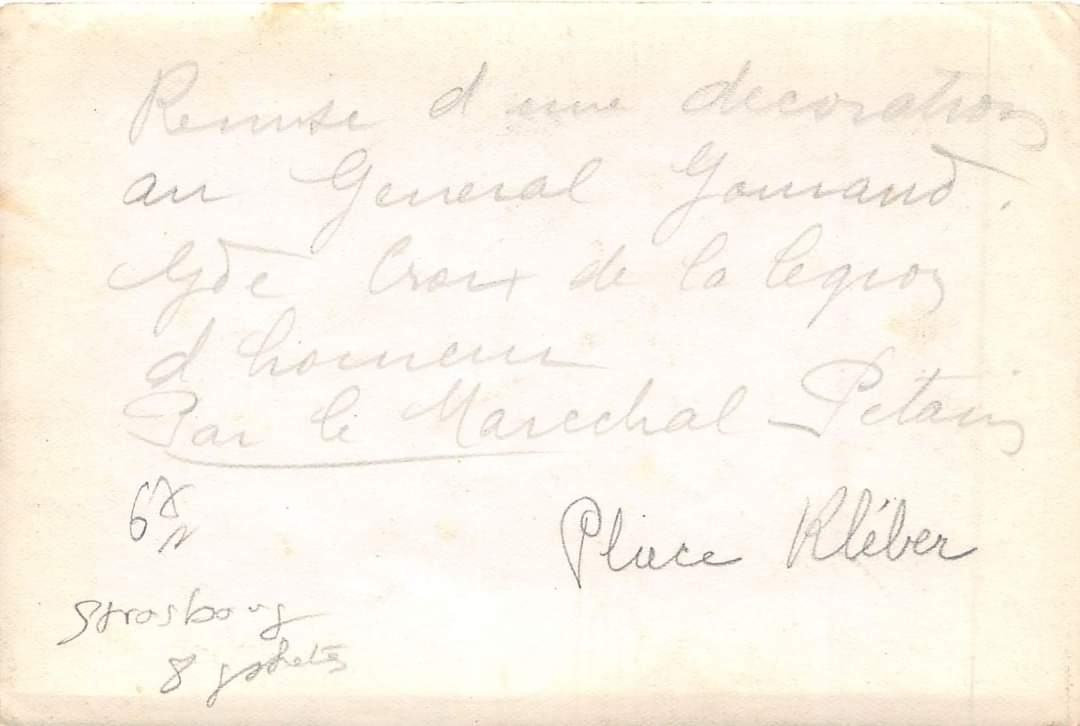 Remise d'une decoration
au General Gouraud.
Gde Croix de la legion
d honneur
Par le Marechal Petain
67
Place Kléber
Strasbourg
8 photos